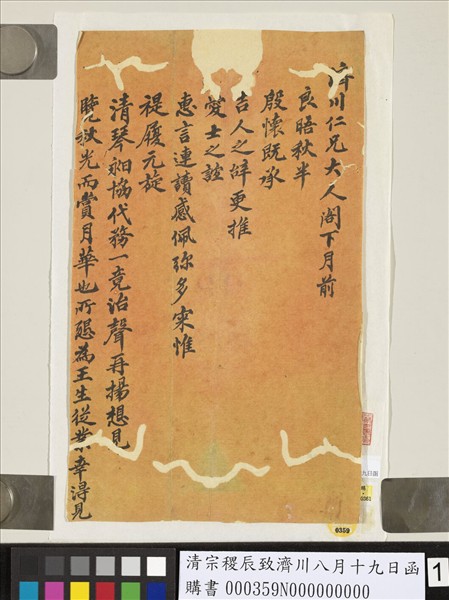 濟川仁兄大人閣下月前
良晤秋半
殷懷既承
吉人之辭更推
愛士之誼
惠言連讀感佩弥多寀惟
禔履元旋
清琴協代務一竟治聲再揚想見
覽秋光而賞月華也所懇為王生從業幸得見
九日函
0361
0359
清宗稷辰致濟川八月十九日函
購書 000359N000000000
1